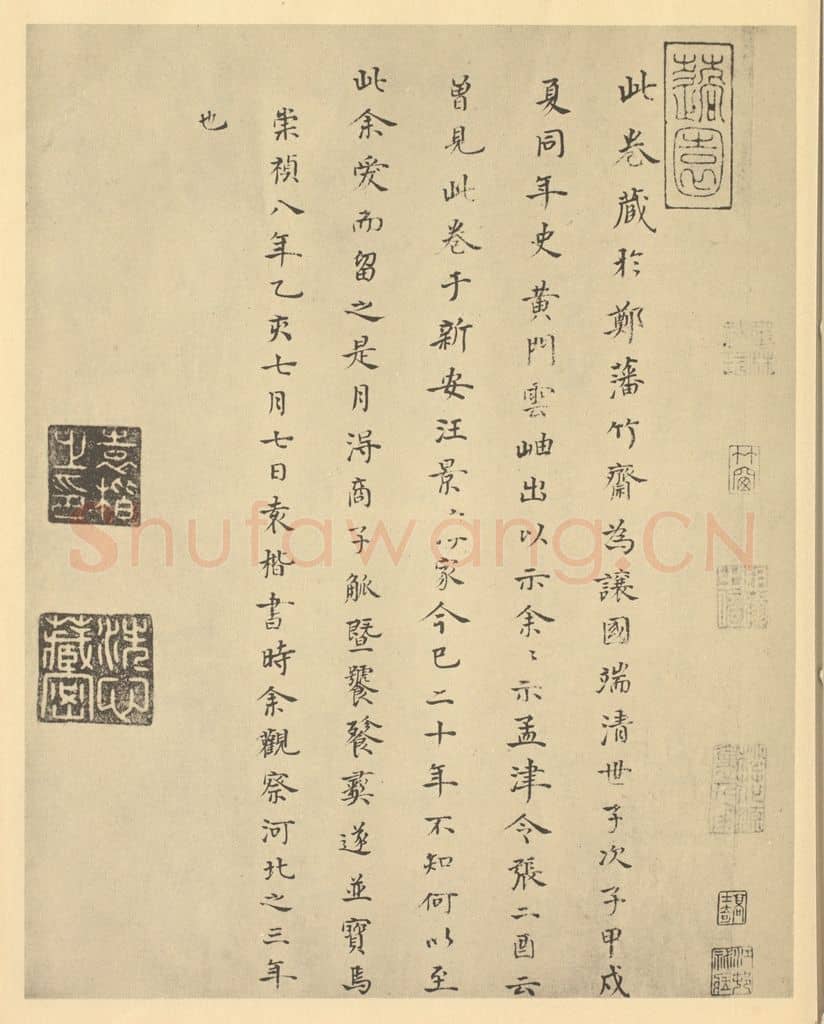 此卷藏於鄭藩竹齋為讓國端清世子次子甲戌
夏同年史黃門雲岫出以示余〻示孟津令張二酉云
曾見此卷于新安汪景家今已二十年不知何以至
此余愛而留之是月得商子觚暨饕餮彞遂並寶焉
崇禎八年乙亥七月七日袁楷書時余觀察河北之三年
也
竹窗
袁楷之印
洗心藏密
Shufawang.CN